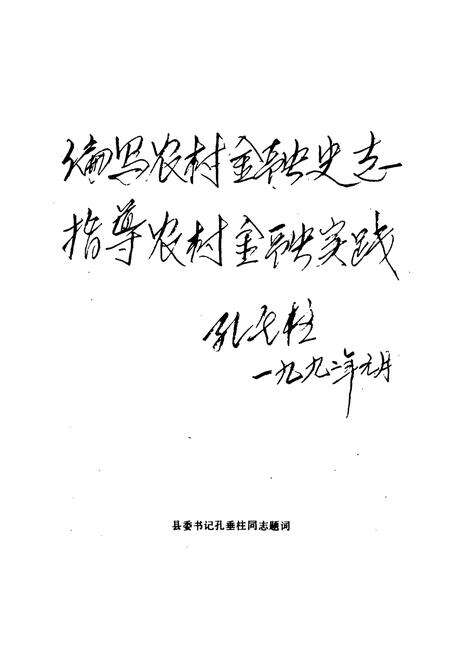 编写农村金融史志
指导农村金融实践
孔垂柱
一九九二年元月
县委书记孔垂柱同志题词